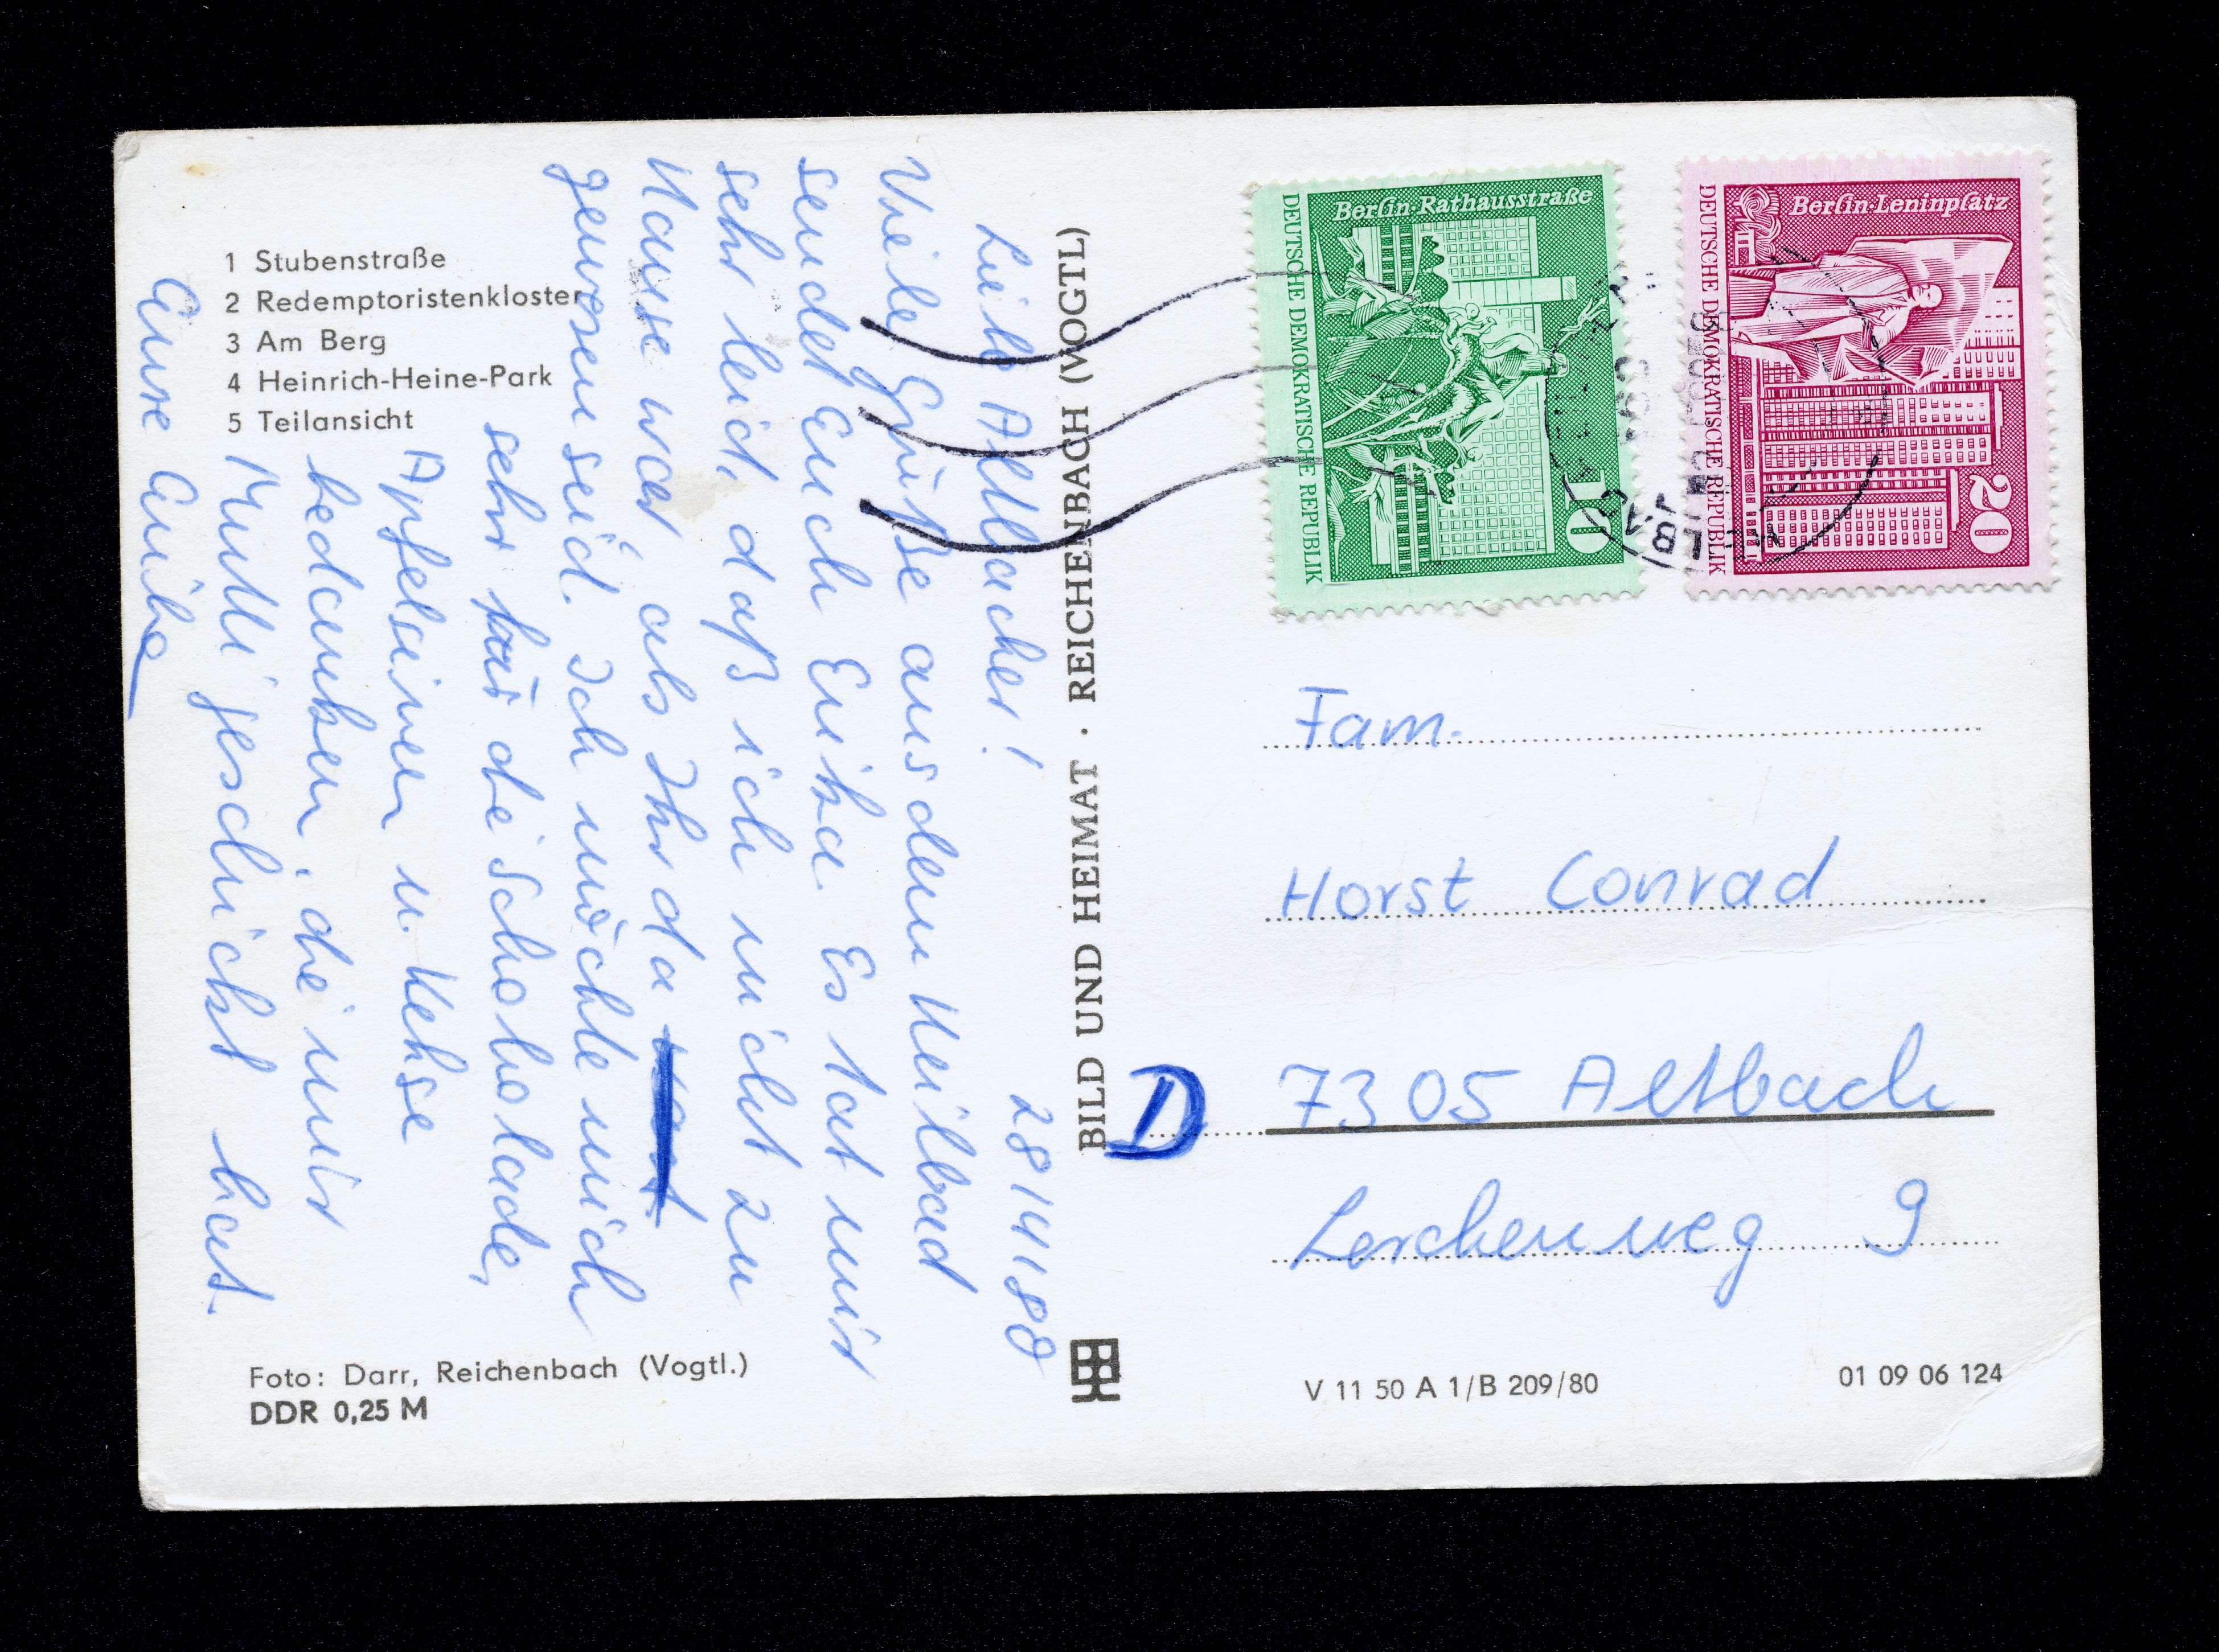 1 Stubenstraße
2 Redemptoristenkloster
3 Am Berg
4 Heinrich-Heine-Park
5 Teilansicht
28/4/80
Liebe Altbacher!
Viele Grüße aus dem Heilbad
sendet Euch Erika. Es tat mir
sehr leid, daß ich nicht zu
Hause war, als Ihr da
gewesen seid. Ich möchte mich
sehr für die Schokolade,
Apfelsinen u. Kekse
bedanken, die mir
Mutti geschickt hat.
Eure Erika
Foto: Darr, Reichenbach (Vogtl.)
DDR 0,25 M
BILD UND HEIMAT · REICHENBACH (VOGTL)
Berlin-Rathausstraße
DEUTSCHE DEMOKRATISCHE REPUBLIK
10
Berlin-Leninplatz
DEUTSCHE DEMOKRATISCHE REPUBLIK
20
Fam.
Horst Conrad
D 7305 Altbach
Lerchenweg 9
V 11 50 A 1/B 209/80
01 09 06 124